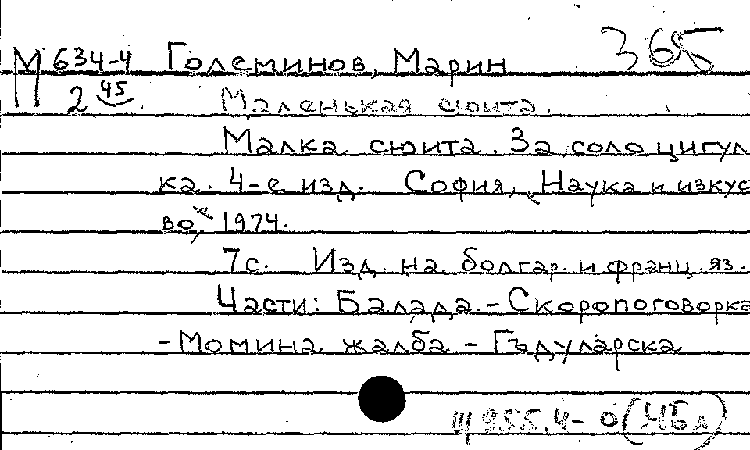 М 634-4 Големинов, Марин 365
2 45. Маленькая сюита.
Малка сюита. За соло цигул
ка. 4-е изд. София, Наука и изкус
во, 1974.
7с. Изд. на болгар. и франц. яз.
Части: Балада. - Скоропоговорка
- Момина жалба - Гъдуларска
Ш 955.4-0 (4Бл)